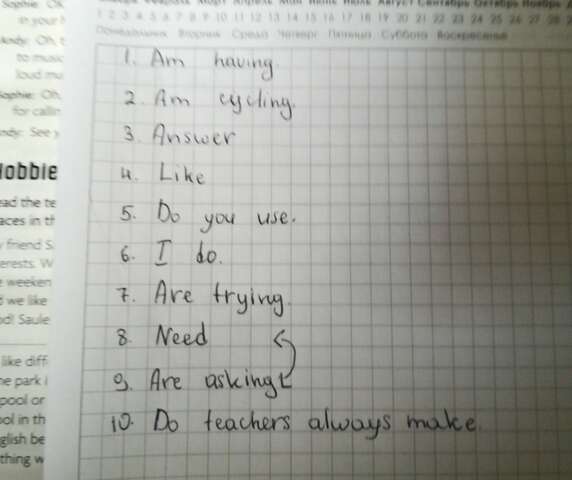 Sophie: Oh
in your
Январь Февраль Март Апрель Май Июнь Июль Август Сентябрь Октябрь Ноябрь
1 2 3 4 5 6 7 8 9 10 11 12 13 14 15 16 17 18 19 20 21 22 23 24 25 26 27 28
Понедельник Вторник Среда Четверг Пятница Суббота Воскресенье
Andy: Oh,
to music
loud mu
Sophie: Oh,
for callin
Andy: See y
1. Am having.
2. Am cycling.
3. Answer
4. Like
5. Do you use.
6. I do.
7. Are trying.
8. Need
9. Are asking
10. Do teachers always make.
Hobbie
ead the te
aces in th
y friend S
erests. W
e weeken
d we like
od! Saule
like diff
he park i
pool or
ool in th
glish be
thing w